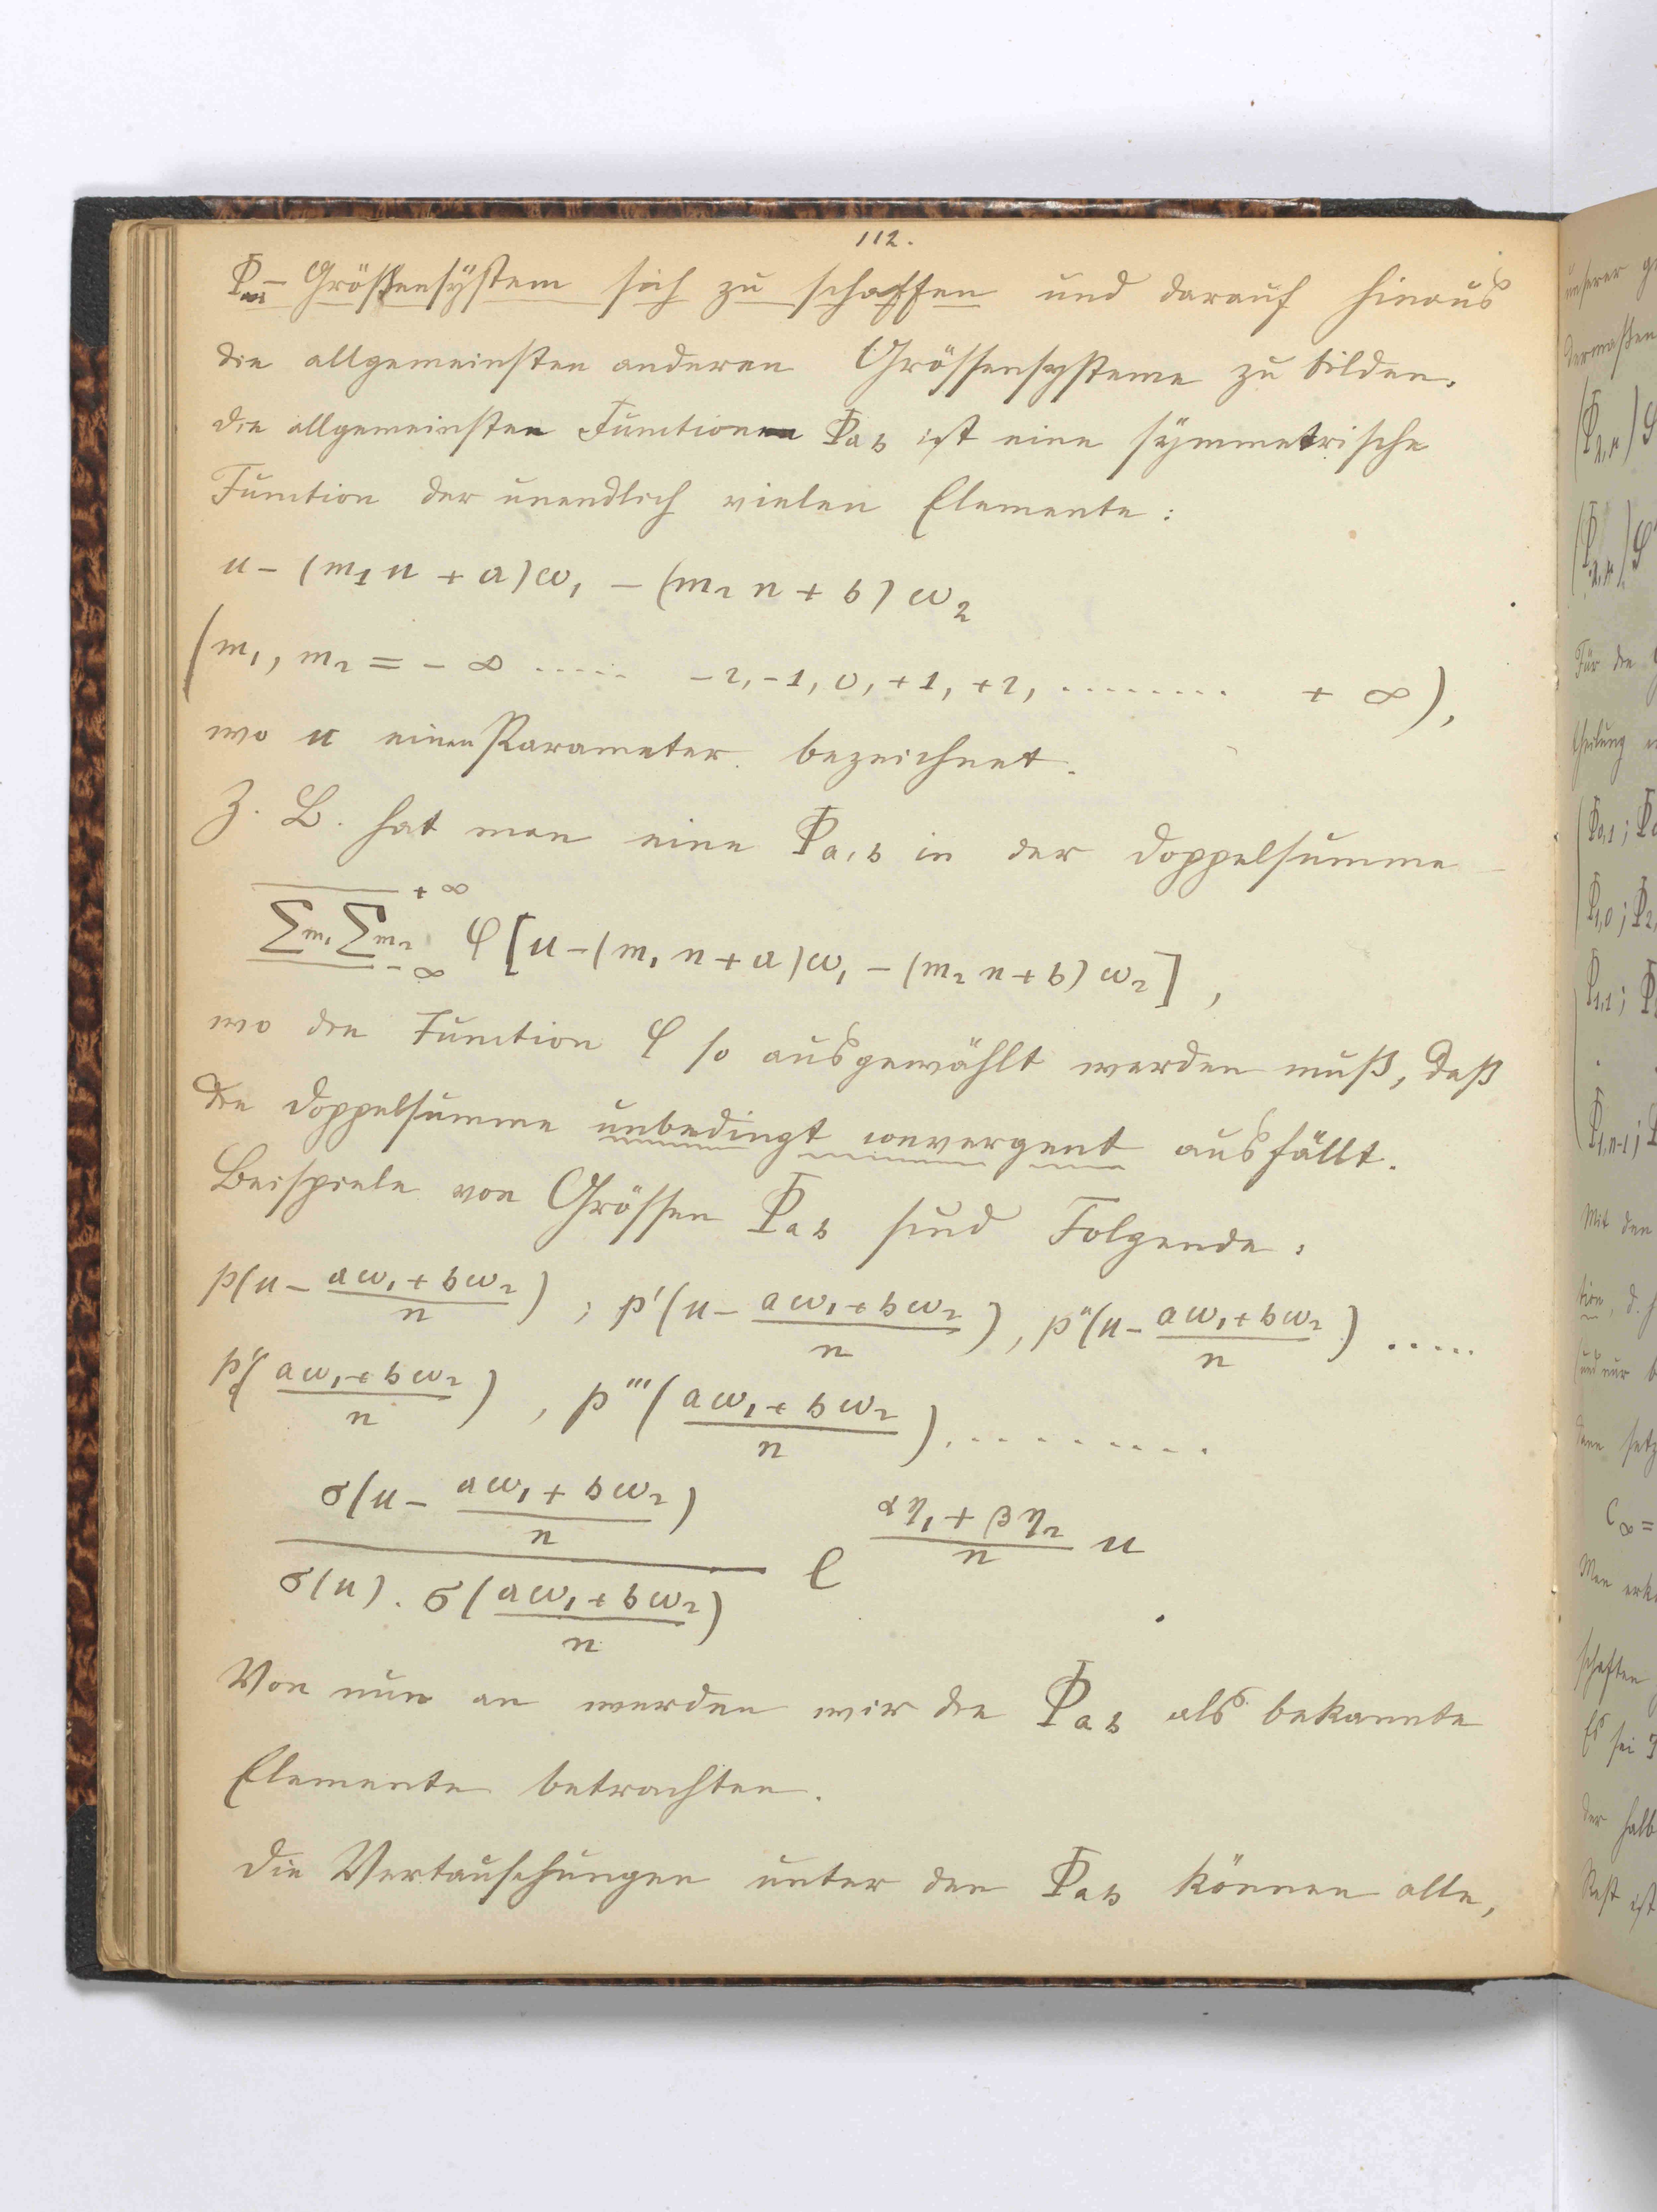 112.
Φ_ab- Grössensystem sich zu schaffen und darauf hinaus
die allgemeinsten anderen Grössensysteme zu bilden.
Die allgemeinsten Functionen Φ_ab ist eine symmetrische
Function der unendlich vielen Elemente:
u - (m₁n + a)ω₁ - (m₂n + b)ω₂
(m₁, m₂ = - ∞ ..... -2, -1, 0, +1, +2, ........ + ∞),
wo u einen Parameter bezeichnet.
Z. B. hat man eine Φ_a,b in der Doppelsumme
Σm₁ Σm₂ +∞ -∞ φ[u-(m₁n+a)ω₁ - (m₂n+b)ω₂],
wo die Function φ so ausgewählt werden muß, daß
die Doppelsumme unbedingt convergent ausfällt.
Beispiele von Grössen Φ_ab sind Folgende:
p(u - (aω₁+bω₂)/n); p'(u - (aω₁+bω₂)/n), p''(u - (aω₁+bω₂)/n) .....
p''((aω₁+bω₂)/n), p'''((aω₁+bω₂)/n), .........
σ(u - (aω₁+bω₂)/n) / σ(u) . σ((aω₁+bω₂)/n) e^((αη₁+βη₂)/n u)
Von nun an werden wir die Φ_ab als bekannte
Elemente betrachten.
Die Vertauschungen unter den Φ_ab können alle,
unserer
dermaßen
Für die
theilung
Mit den
tion, d. h
(und nur
dann setz
C∞ =
Man erk
schaften
Es sei
der halb
Rest ist